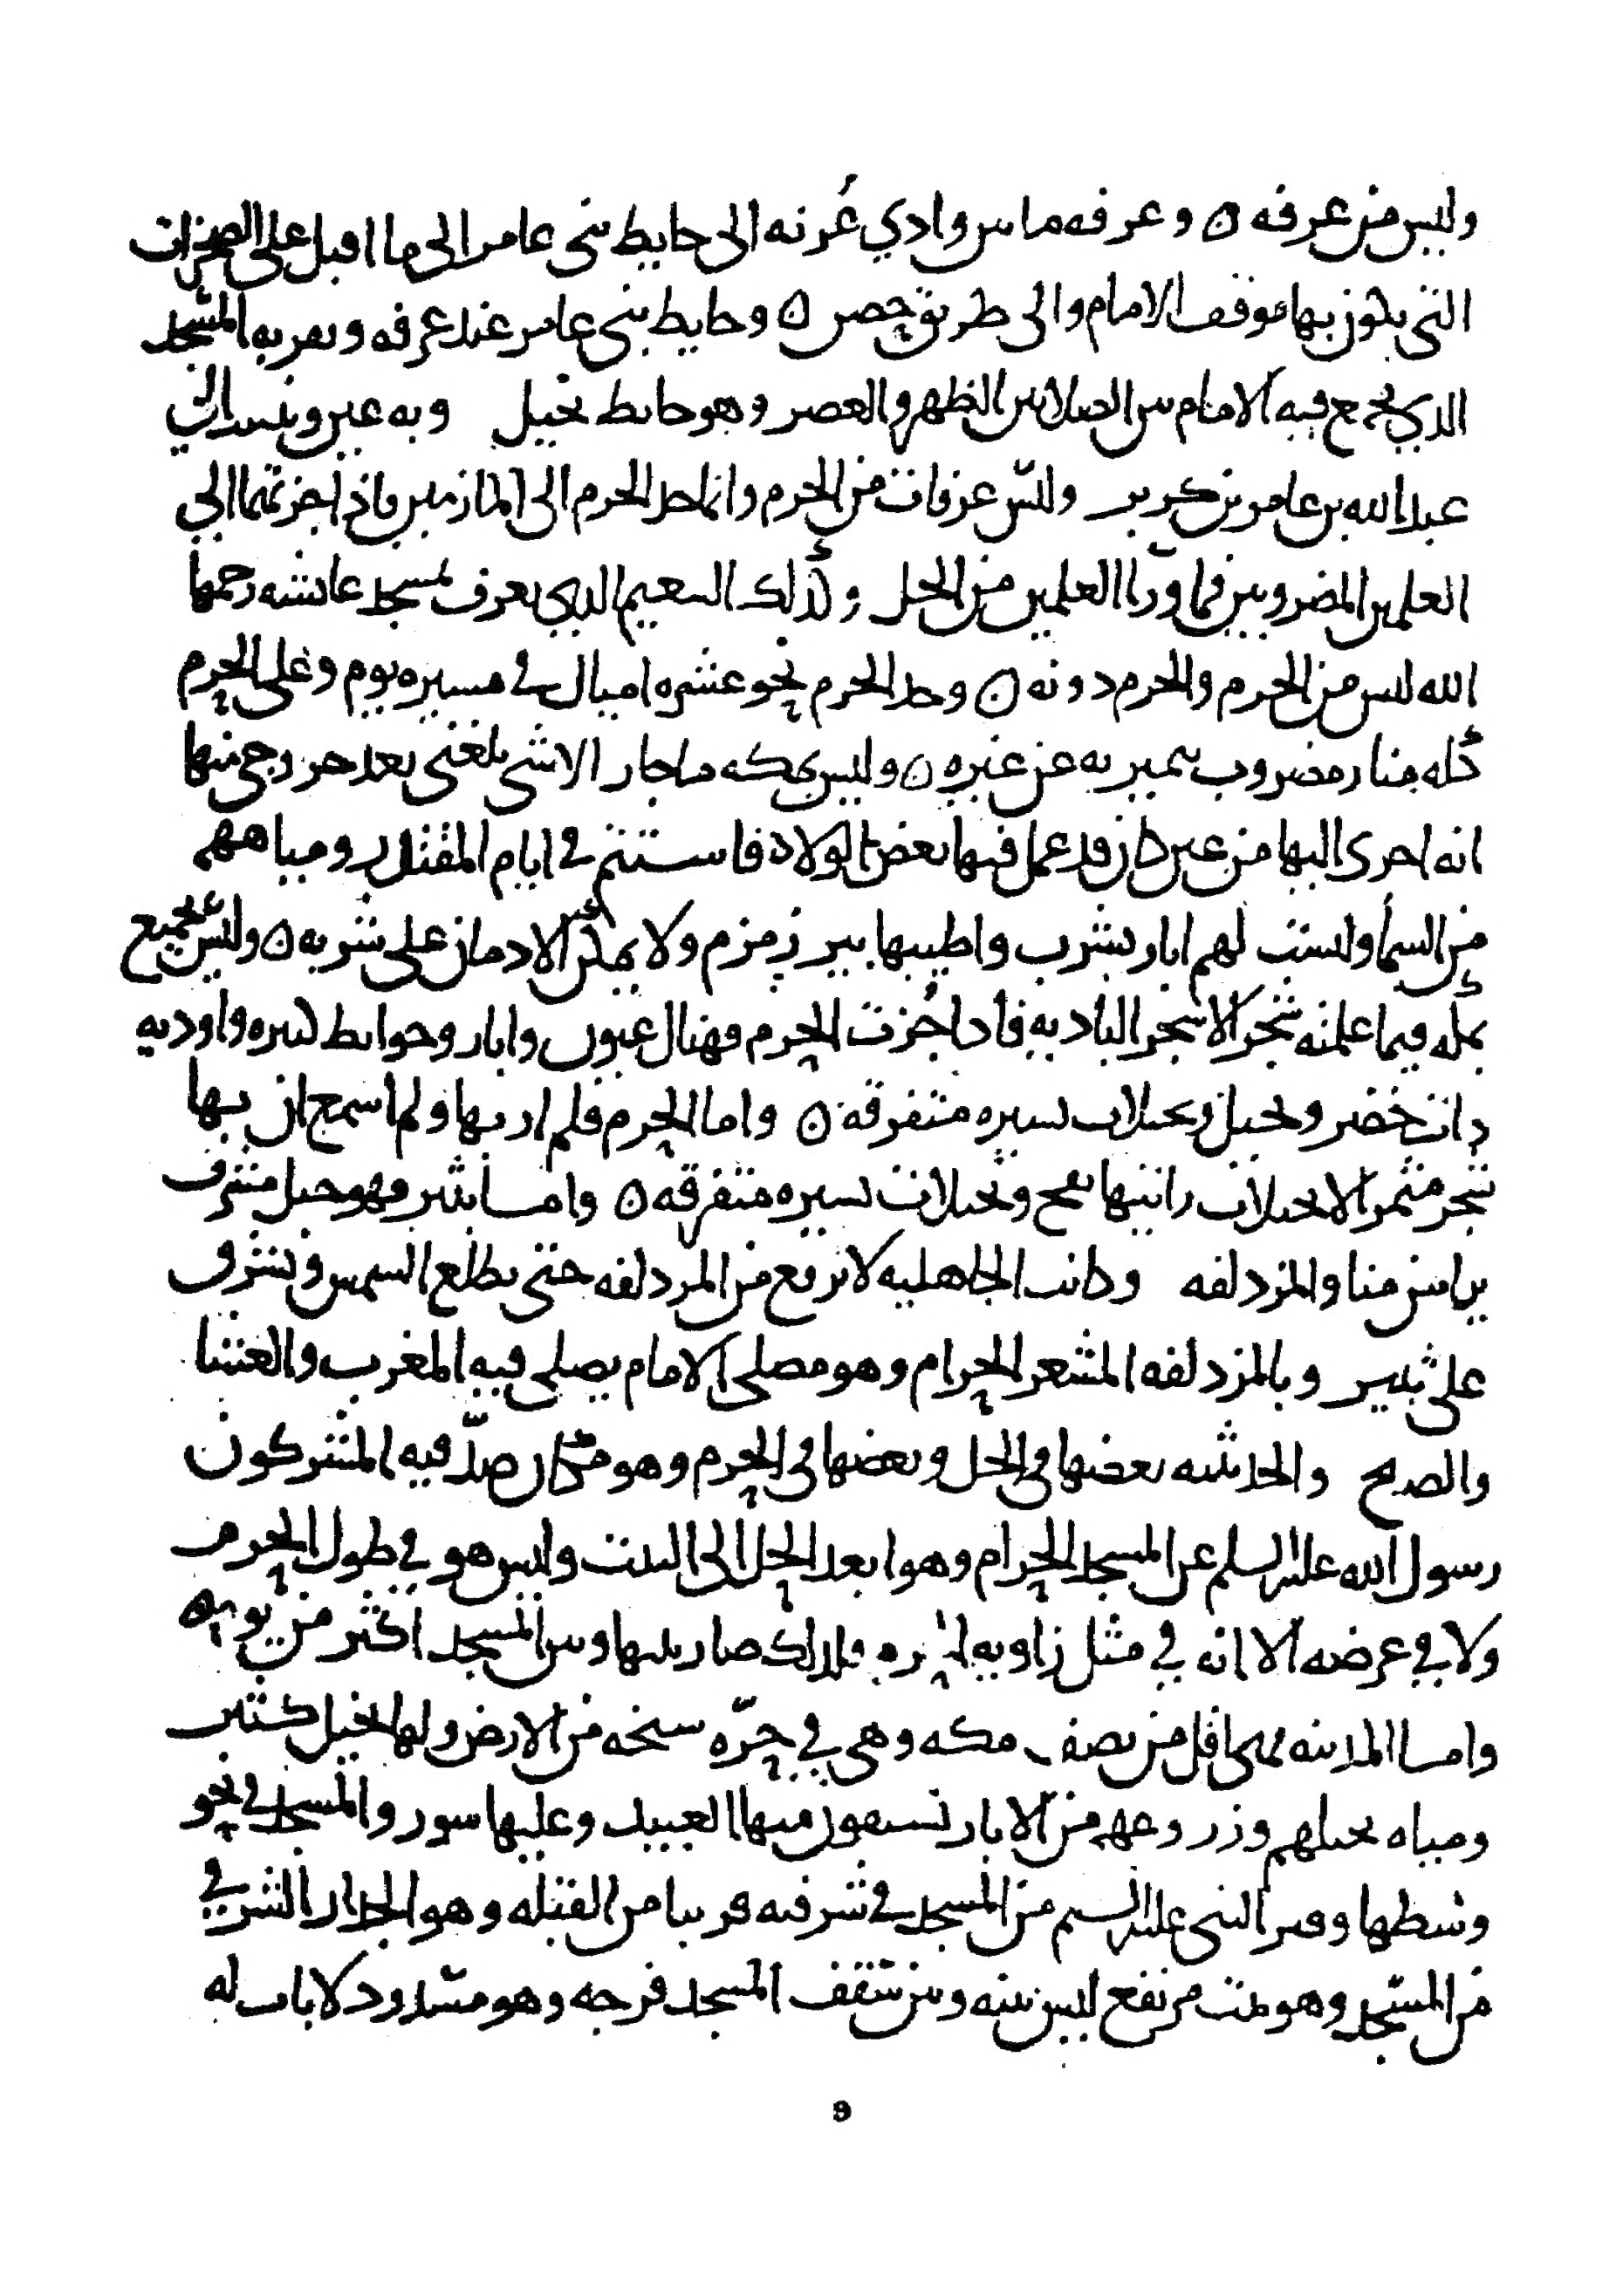 وليس من عرفه ٥ وعرفه ما بين وادي عُرنه الى حايط بنى عامر الى ما اقبل على الصخرات
التى يكون بها موقف الامام والى طريق حصن ٥ وحايط بنى عامر عند عرفه وبقربه المسجد
الذي يجمع فيه الامام بين الصلاتين الظهر والعصر وهو حايط نخيل وبه عين وينسب الى
عبد الله بن عامر بن كريز وليس عرفات من الحرم وانما حد الحرم الى المازمين فاذا جزتهما الى
العلمين المضروبين فما ورآ العلمين من الحل وكذلك التنعيم الذي يعرف بمسجد عائشه رحمها
الله ليس من الحرم والحرم دونه ٥ وحد الحرم نحو عشره اميال في مسيره يوم وعلى الحرم
كله منار مضروب يتميز به عن غيره ٥ وليس بمكه ما جار الا شى بلغنى بعد خروجى منها
انه اجرى اليها من عين كان قد عمل فيها بعض الولاه فاستتم في ايام المقتدر ومياههم
من السمأ وليست لهم ابار تشرب واطيبها بير زمزم ولا يمكن الادمان على شربه ٥ وليس بجميع
مكه فيما علمته شجر الا شجر الباديه فاذا جُزت الحرم فهناك عيون وابار وحوايط كثيره واوديه
ذات خضر ونخيل ونخيلات يسيره متفرقه ٥ واما الحرم فلم ار بها ولم اسمع ان بها
شجر مثمر الا نخيلات رايتها بفخ ونخيلات يسيره متفرقه ٥ واما ثبير فهو جبل مشرف
يرا من منا والمزدلفه وكانت الجاهليه لا ترفع من المزدلفه حتى تطلع الشمس وتشرق
على ثبير وبالمزدلفه المشعر الحرام وهو مصلى الامام يصلى فيه المغرب والعشا
والصبح والحديبيه بعضها في الحل وبعضها في الحرم وهو مكان صدّ فيه المشركون
رسول الله عليه السلم عن المسجد الحرام وهو ابعد الحل الى البيت وليس هو في طول الحرم
ولا في عرضه الا انه في مثل زاويه الحرم فلذلك صار بينها وبين المسجد اكثر من يوم ٥
واما المدينه فهى اقل من نصف مكه وهى في حرّه سبخه من الارض ولها نخيل كثير
ومياه نخيلهم وزروعهم من الابار يستقون منها العبيد وعليها سور والمسجد في نحو
وسطها وقبر النبى عليه السلم من المسجد في شرقيه قريبا من القبله وهو الجدار الشرقي
من المسجد وهو بيت مرتفع ليس بينه وبين سقف المسجد فرجه وهو مسدود لا باب له
٩